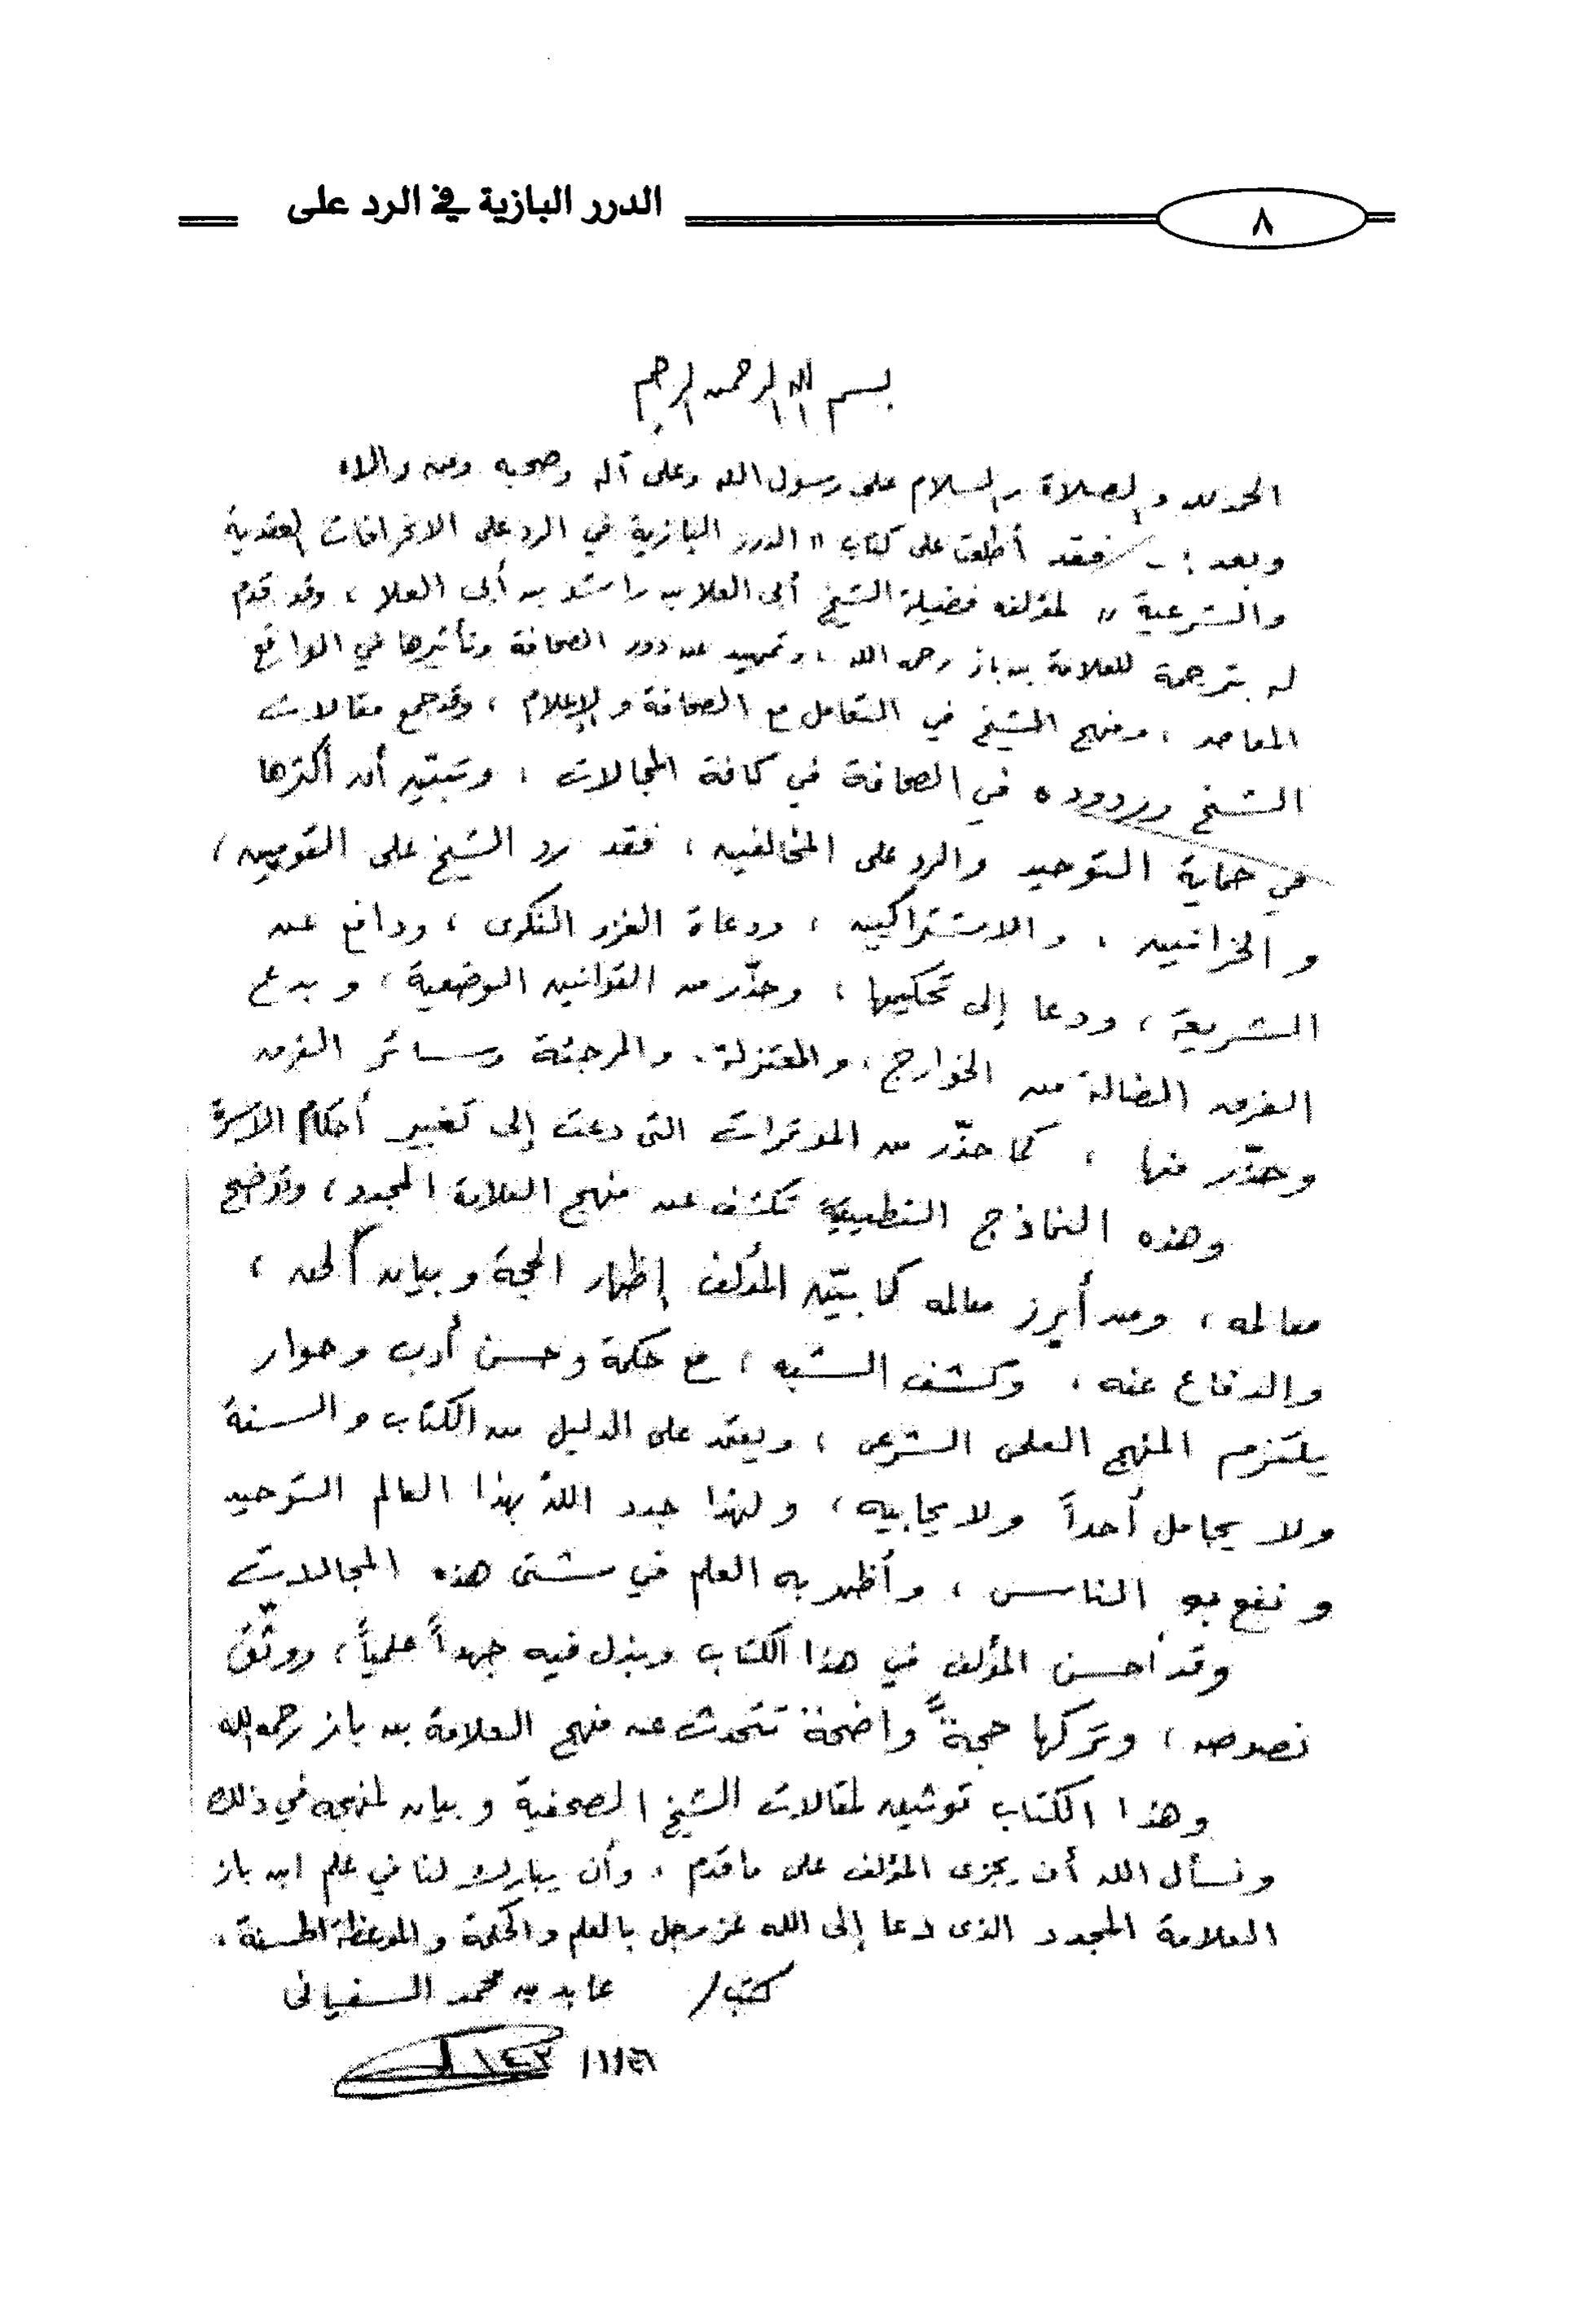 الدرر البازية في الرد على
٨
بسم الله الرحمن الرحيم
الحمد لله والصلاة والسلام على رسول الله وعلى آله وصحبه ومن والاه
وبعد :- فقد أطلعت على كتاب " الدرر البازية في الرد على الانحرافات العقدية
والشرعية " لمؤلفه فضيلة الشيخ أبي العلا بن راشد بن أبي العلا ، وقد قدم
له بترجمة للعلامة بن باز رحمه الله ، وتمهيد عن دور الصحافة وتأثيرها في الواقع
المعاصر ، ومنهج الشيخ في التعامل مع الصحافة والإعلام ، وقد جمع مقالات
الشيخ وردوده في الصحافة في كافة المجالات ، وتبيّن أن أكثرها
في حماية التوحيد والرد على المخالفين ، فقد رد الشيخ على القوميين ،
والخرافيين ، والاشتراكيين ، ودعاة الغزو الفكري ، ودافع عن
الشريعة ، ودعا إلى تحكيمها ، وحذّر من القوانين الوضعية ، وبدع
الفرق الضالة من الخوارج ، والمعتزلة ، والمرجئة وسائر الفرق
وحذّر منها ، كما حذّر من المؤتمرات التي دعت إلى تغيير أحكام الأسرة
وهذه النماذج التطبيقية تكشف عن منهج العلامة المجدد ، وتوضح
معالمه ، ومن أبرز معالمه كما بيّن المؤلف إظهار الحجة وبيان الحق ،
والدفاع عنه ، وكشف الشبه ، مع حكمة وحسن أدب وحوار
يلتزم المنهج العلمي الشرعي ، ويعتمد على الدليل من الكتاب والسنة
ولا يجامل أحداً ولا يحابيه ، ولهذا جدد الله بهذا العالم التوحيد
ونفع به الناس ، وأظهر به العلم في شتى هذه المجالات
وقد أحسن المؤلف في هذا الكتاب وبذل فيه جهداً علمياً ، ووثّق
نصوصه ، وتركها حجةً واضحة تتحدث عن منهج العلامة بن باز رحمه الله
وهذا الكتاب توثيق لمقالات الشيخ الصحفية وبيان لمنهجه في ذلك
ونسأل الله أن يجزي المؤلف على ما قدم ، وأن يبارك لنا في علم ابن باز
العلامة المجدد الذي دعا إلى الله عز وجل بالعلم والحكمة والموعظة الحسنة .
كتبه / عابد بن محمد السفياني